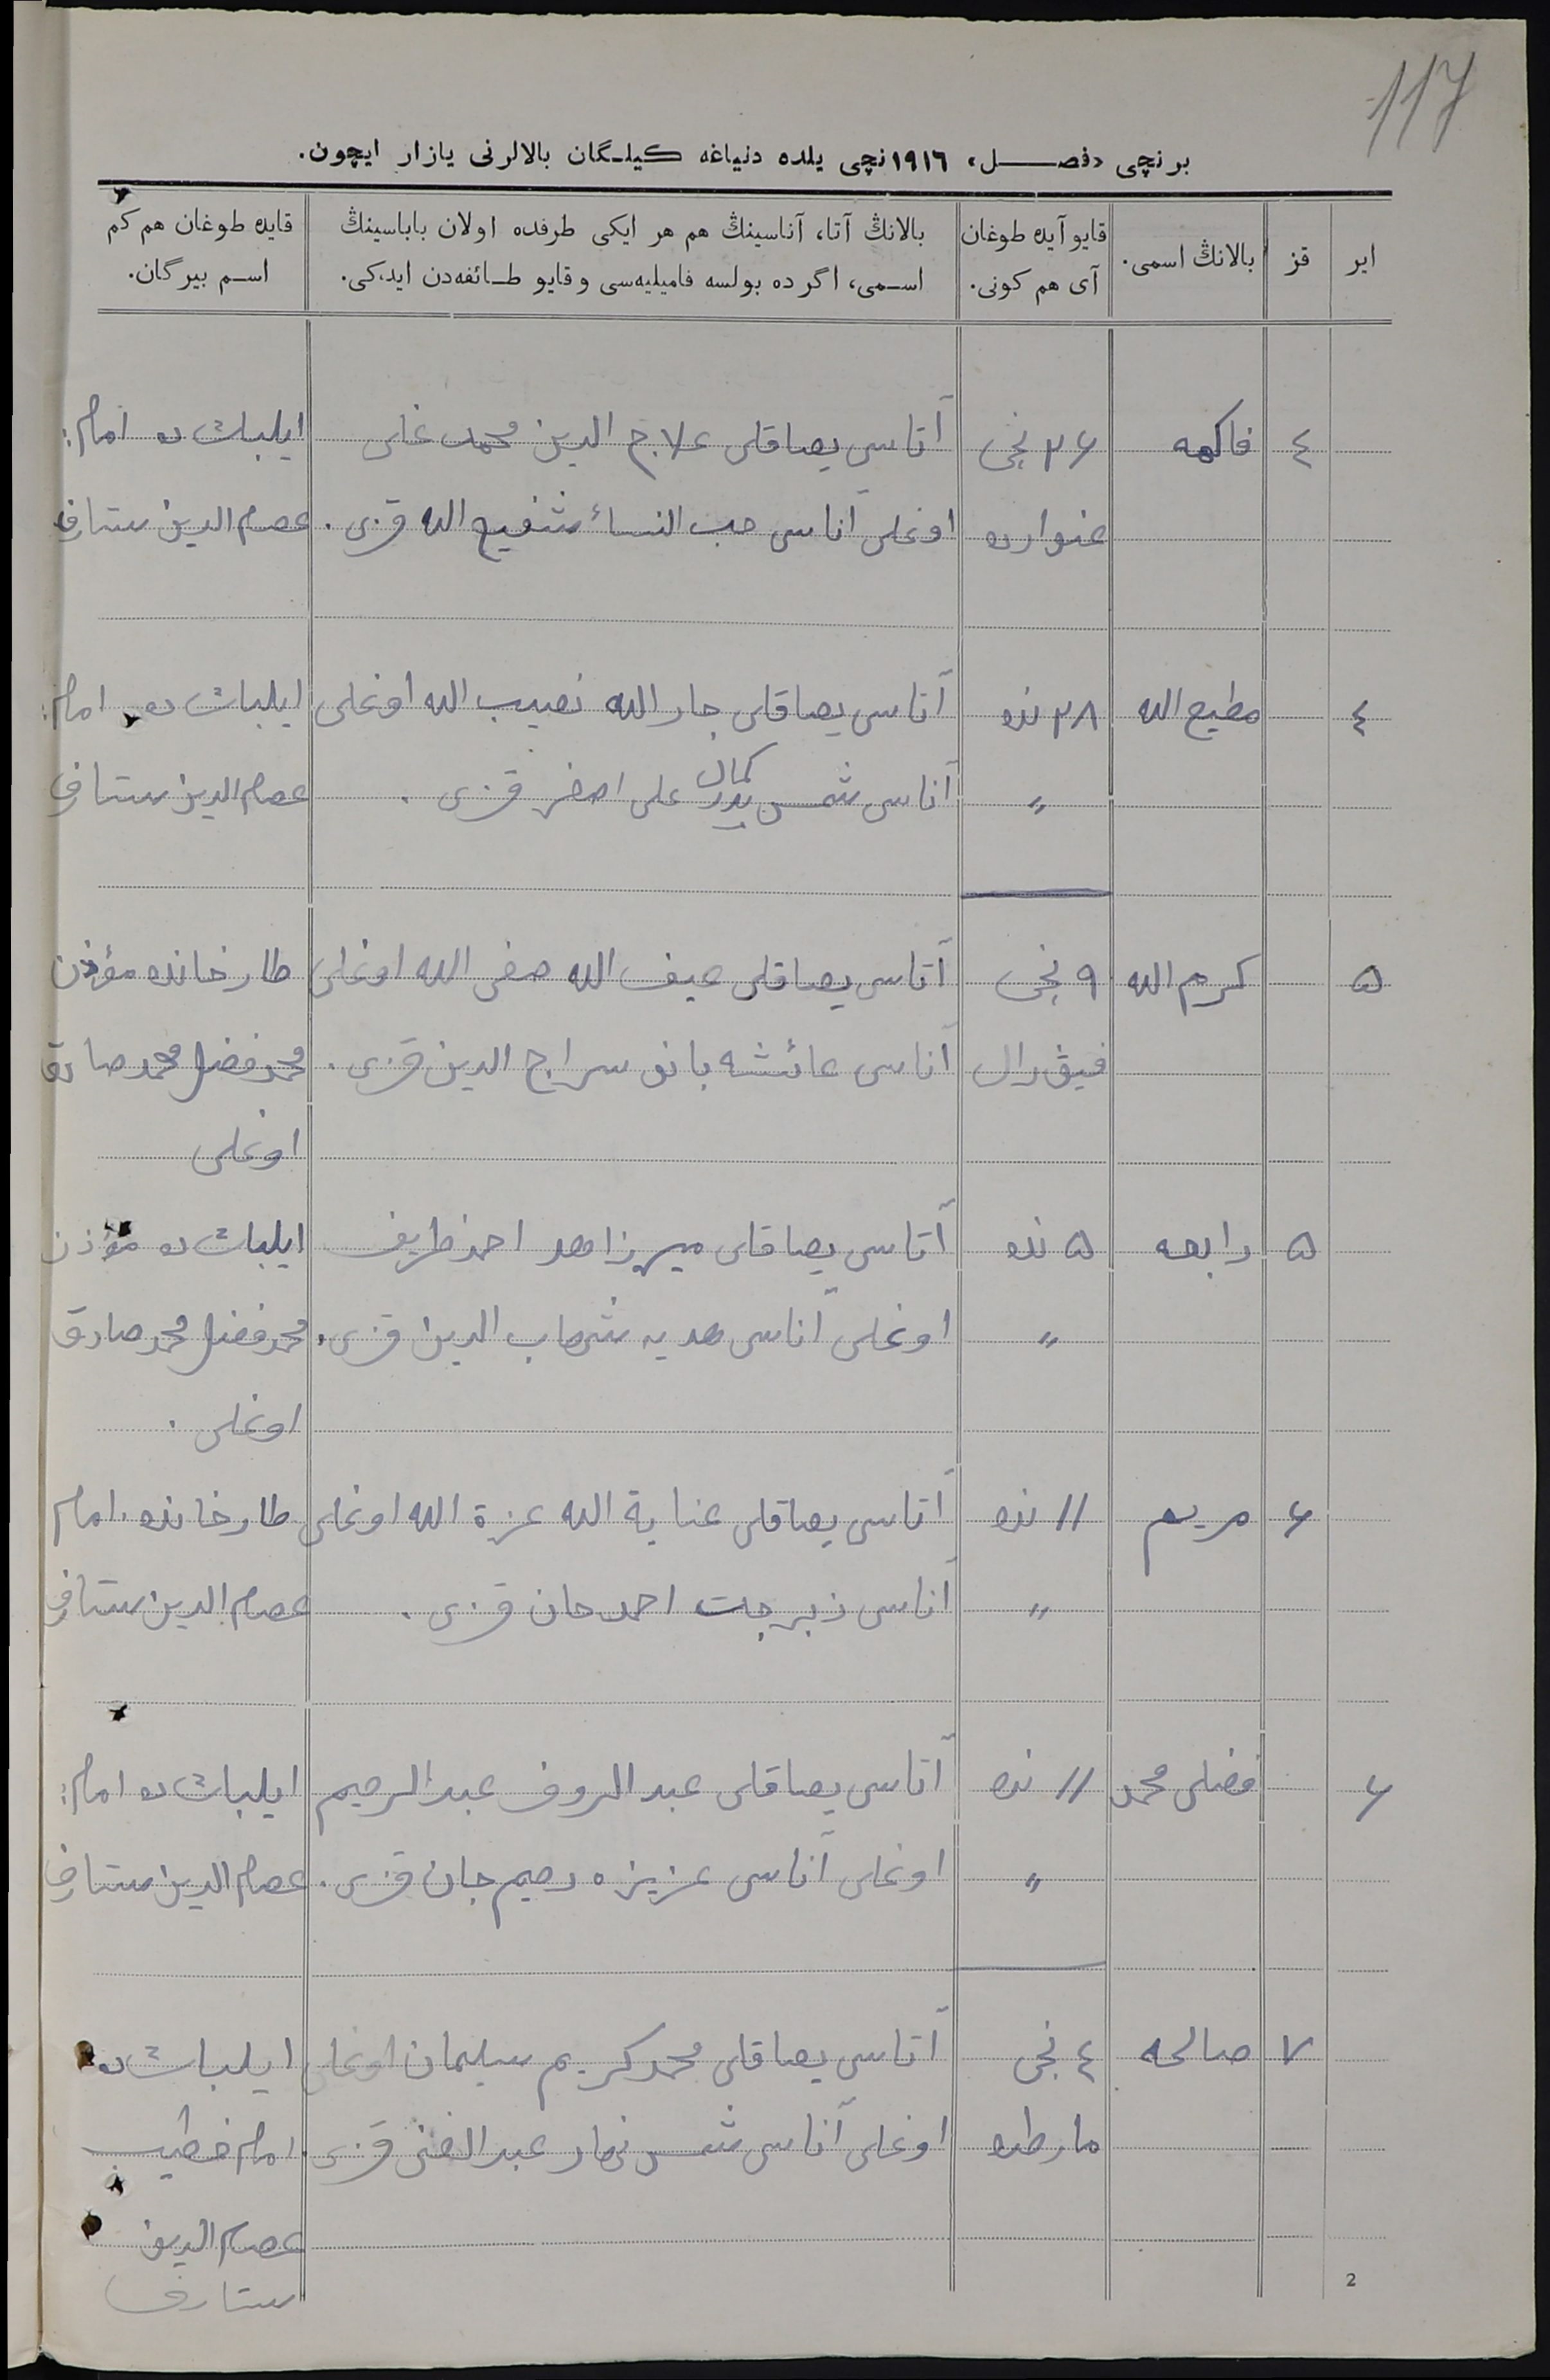 117
برنچی «فصل» ١٩١٦نچی یلده دنیاغه کیلگان بالالرنی یازار ایچون.
ایر
قز
بالانڭ اسمی.
قایو آیده طوغان آی هم کونی.
بالانڭ آتا، آناسینڭ هم هر ایکی طرفده اولان باباسینڭ اسمی، اگرده بولسه فامیلیه‌سی و قایو طائفه‌دن ایدکی.
قایده طوغان هم کم اسم بیرگان.
٤ فاکهه ٢۶ نجی آتاسی یصاقلی علاج الدین محمد علی ایلبات ده امام:
غنوارده اوغلی آناسی حب النساء شفیع الله قزی. عصام الدین ستارف
٤ مطیع الله ٢٨ نده آتاسی یصاقلی جار الله نصیب الله اوغلی ایلبات ده امام:
" آناسی شمس کمال علی اصغر قزی. عصام الدین ستارف
۵ کرم الله ٩ نجی آتاسی یصاقلی صفی الله اوغلی طارخانده مؤذن
فیورال آناسی عائشه بانو سراج الدین قزی. محمد فضل محمد صادق
اوغلی
۵ رابعه ۵ نده آتاسی یصاقلی میرزاهد احمد ظریف ایلبات ده مؤذن
" اوغلی آناسی هدیه شهاب الدین قزی. محمد فضل محمد صادق
اوغلی.
۶ مریم ١١ نده آتاسی یصاقلی عنایة الله عزة الله اوغلی طارخانده امام
" آناسی زبرجت احمد جان قزی. عصام الدین ستارف
۶ فضلی محمد ١١ نده آتاسی یصاقلی عبد الروف عبد الرحیم ایلبات ده امام:
" اوغلی آناسی عزیزه رحیم جان قزی. عصام الدین ستارف
٧ صالحه ٤ نجی آتاسی یصاقلی محمد کریم سلیمان اوغلی ایلبات ده
مارطده اوغلی آناسی شمس نهار عبد الغنی قزی. امام خطیب
عصام الدین
ستارف
2